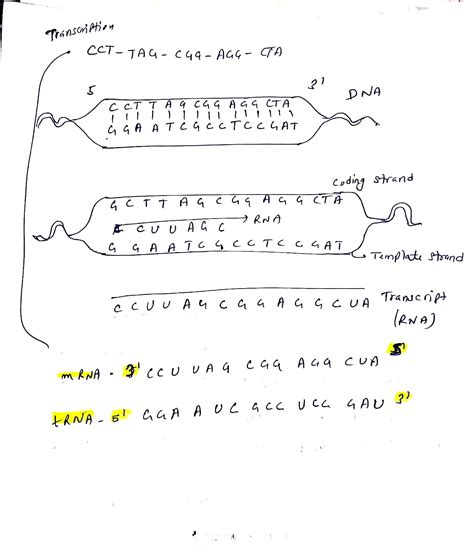 Transcription
CCT - TAG - CGG - AGG - CTA
5 3' DNA
C C T T A G C G G A G G C T A
G G A A T C G C C T C C G A T
Coding strand
G C T T A G C G G A G G C T A
C U U A G C RNA
G G A A T C G C C T C C G A T
Template strand
C C U U A G C G G A G G C U A Transcript
(RNA)
mRNA - 3' C C U U A G C G G A G G C U A 5'
tRNA - 5' G G A A U C G C C U C C G A U 3'